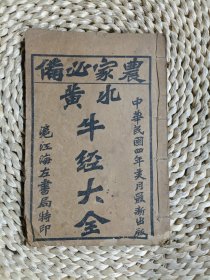 農家必備
中華民國四年月最新出版
水黄
牛經大全
滬江海左書局特印